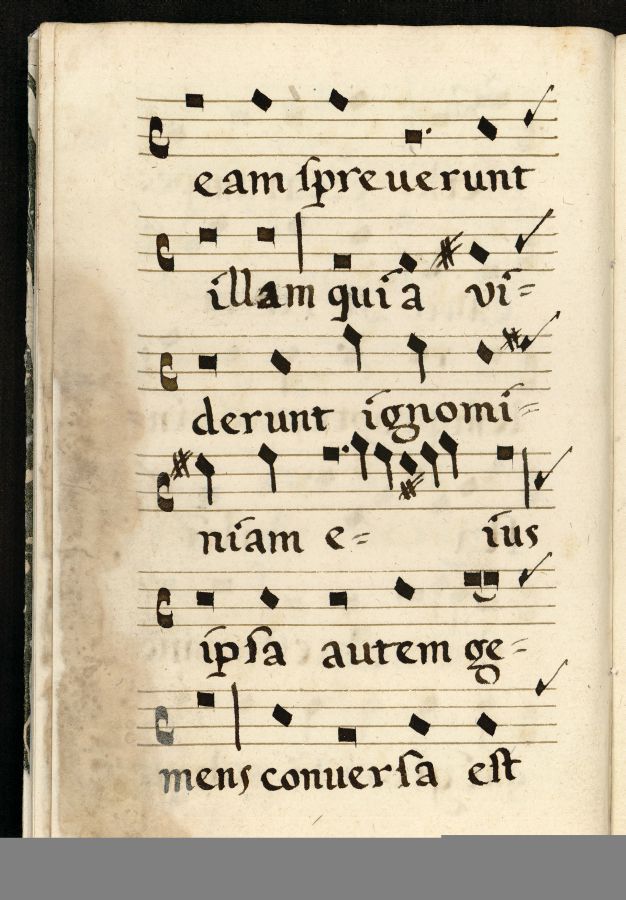 eam ſpreuerunt
illam quia vi=
derunt ignomi=
niam e= ius
ipſa autem ge=
mens conuerſa eſt